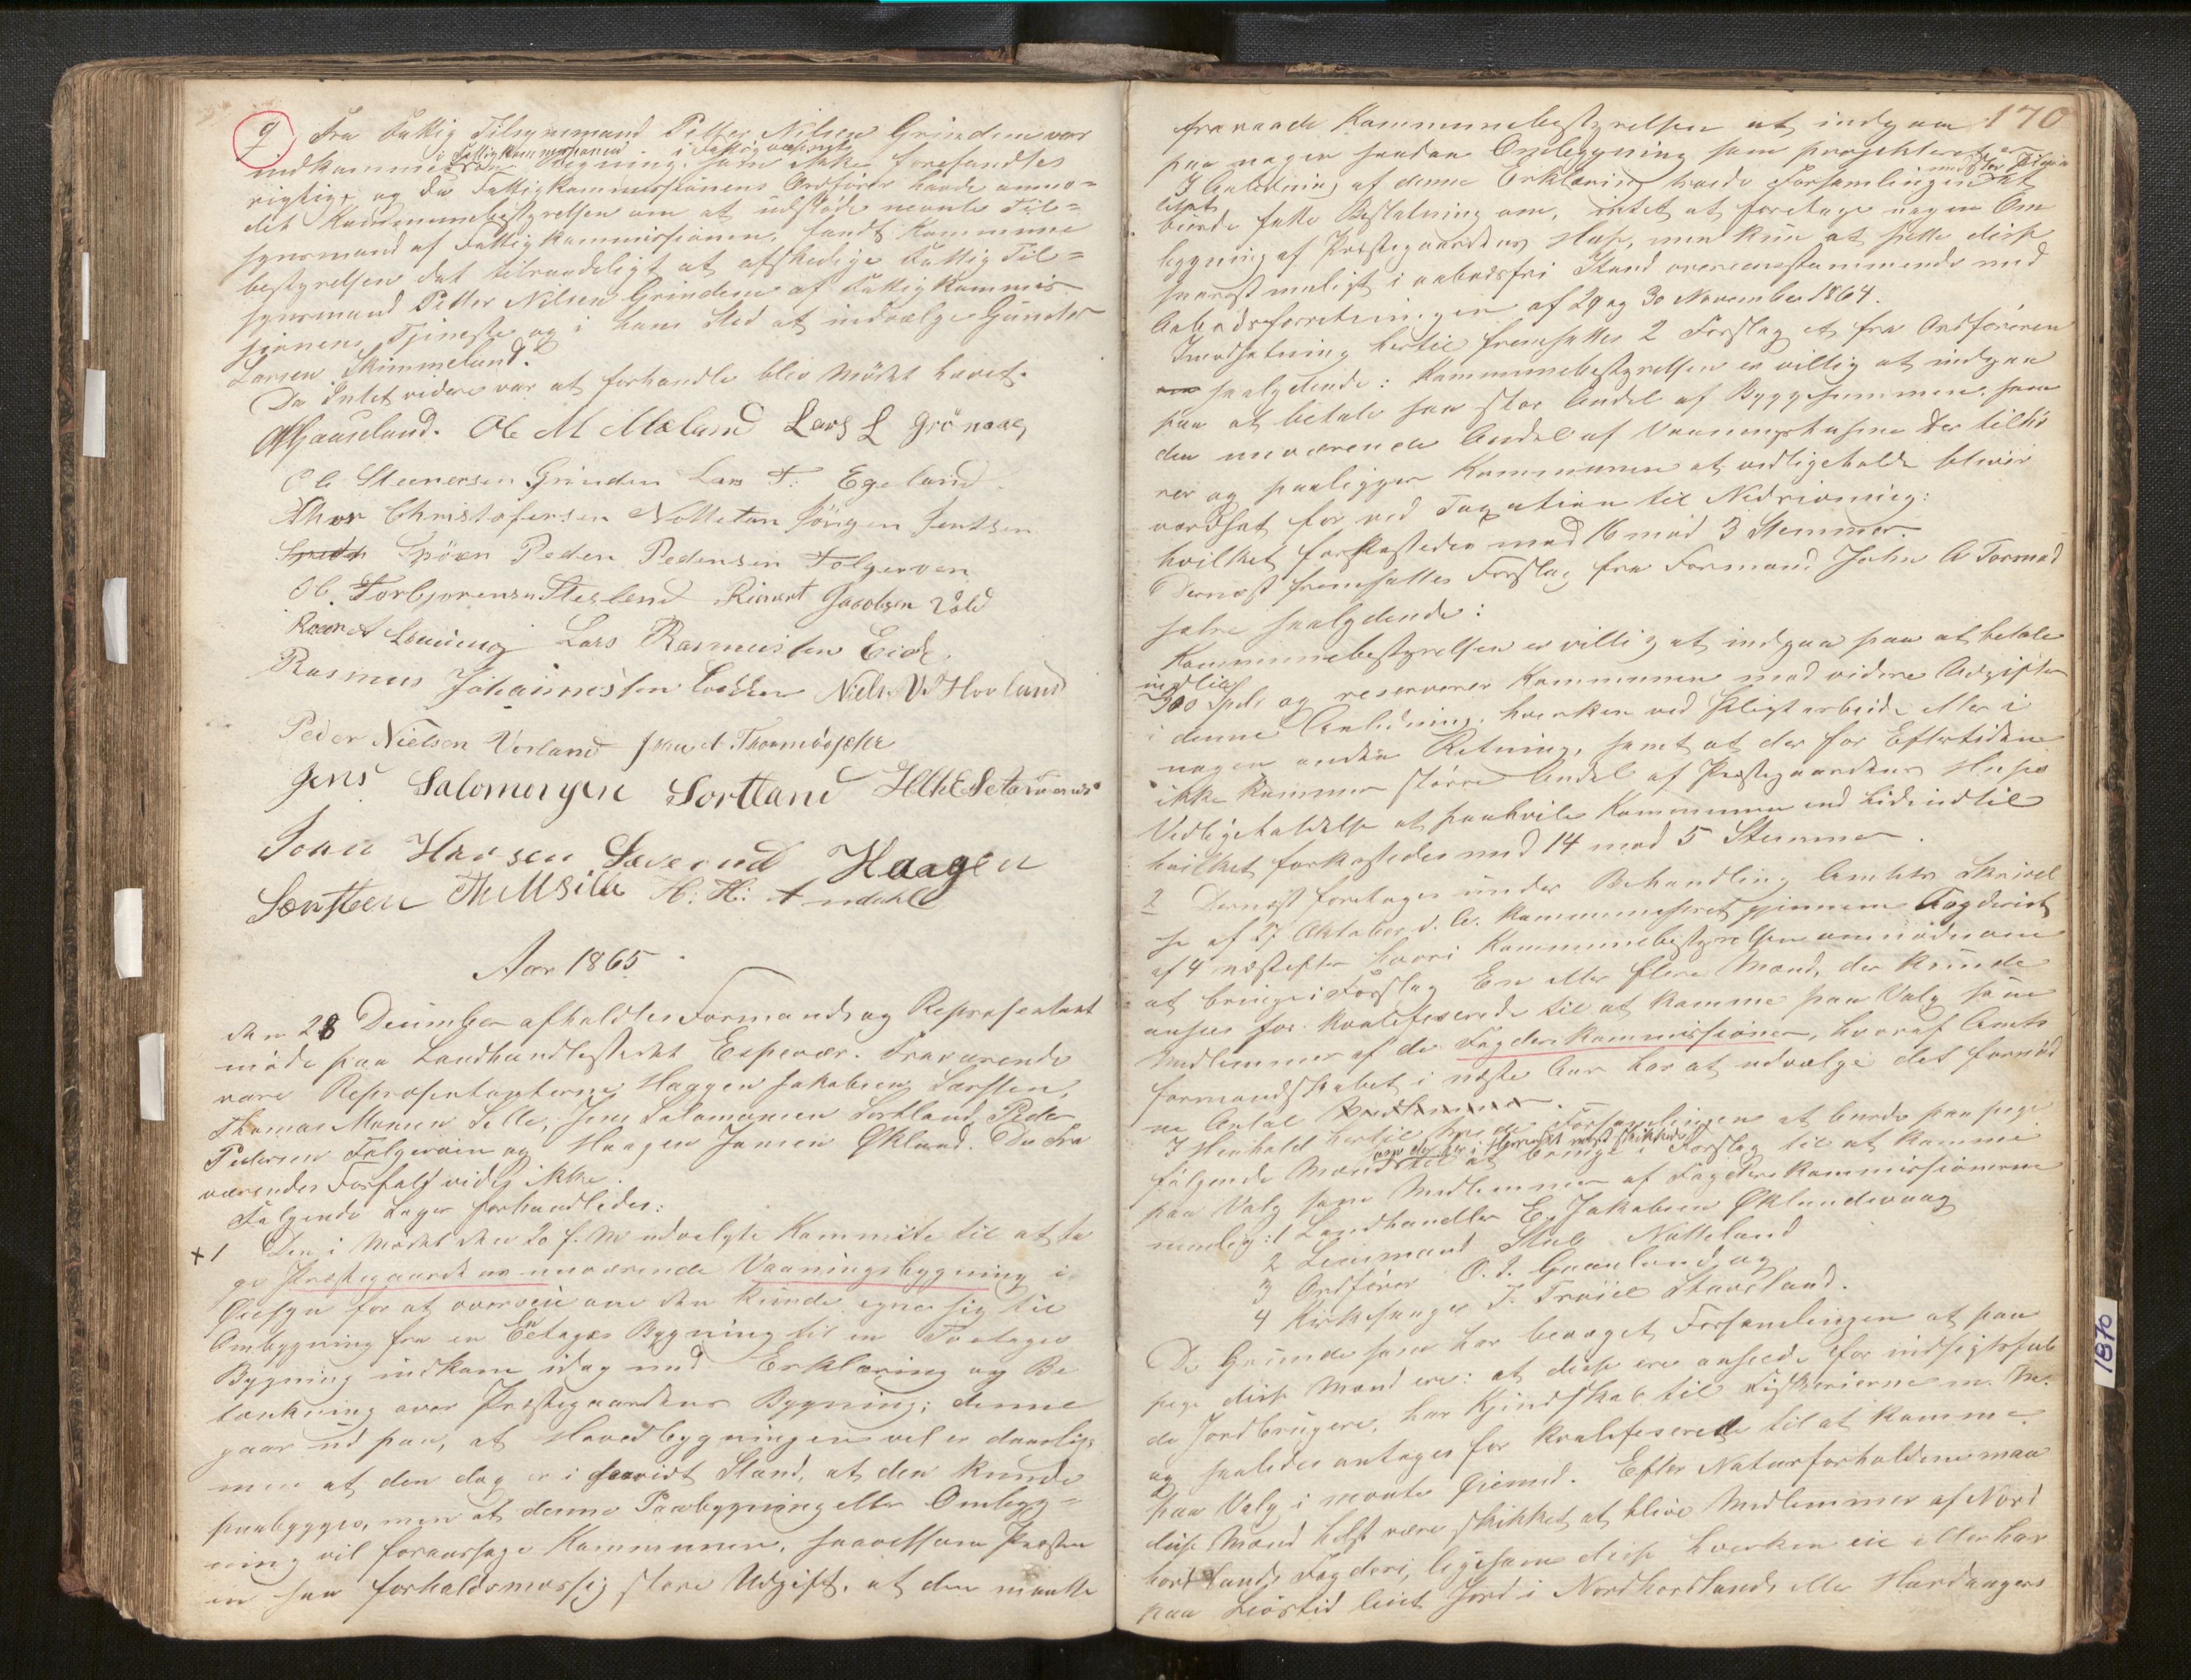 9 Fra Fattig Tilsynsmand Petter Nilsen Grinden var
i Fattigkommissionen i Fattigvæsenet
indkommen Regning, som ikke forefandtes
rigtig, og da Fattigkommissionens Ordförer havde anmo=
det Kommunebestyrelsen om at udstöde nævnte Til=
synsmand af Fattigkommissionen, fandt Kommune
bestyrelsen det tilraadeligt at afskedige Fattig Til=
synsmand Petter Nilsen Grinden af Fattigkommis
sionens Tjeneste og i hans Sted at indvælge Gunder
Larsen Skimmeland.
Da Intet videre var at forhandle blev Mödet hævet.
Gaaseland. Ole M Mæland Lars L Grönaas
Ole Steenersen Grinden Lars T. Egeland
Thor Christofersen Notteton Jörgen Jentsen
Spöen Peder Pedersen Folgeroen
Ol. Torbjornsen Stesland Rienert Jacobsen Vold
Lars Rasmussen Eide
Rasmus Johannessen Lokken Niels V Hovland
Peder Nielsen Vorland John A Thormodsæter
Jens Salomonsen Sortland
John Hansen Sævereid Haagen
Særsten Th M Sille H: H: Andahl
Aar 1865
den 28 December afholdtes Formands og Repræsentant
möde paa Landhandlestedet Espevær. Fraværende
vare Repræsentanterne Haggen Jakobsen Særsten,
Thomas Monsen Selle, Jens Salamonsen Sortland, Peder
Pedersen Folgeröen og Haagen Jansen Økland. De Fra
værendes Forfald vides ikke.
Fölgende Sager forhandledes:
+ 1 Den i Mödet den 20 f. M. udvalgte Kommite til at ta
ge Præstegaardens nuværende Vaaningsbygning i
Øiesyn for at overveie om den kunde egne sig til
Ombygning fra en Eetages Bygning til en Toetages
Bygning indkom idag med Erklæring og Be
tænkning over Præstegaardens Bygning; denne
gaar ud paa, at Hovedbygningen vel er daarlig,
men at den dog er i saavidt Stand, at den kunde
paabygges, men at denne Paabygning eller Ombyg=
ning vil foraarsage Kommunen, saavelsom Præsten
en saa forholdsmæssig store Udgift, at den maatte
170
fraraade Kommunebestyrelsen at indgaa
paa nogen saadan Ombygning som projekteret er
I Anledning af denne Erklæring troede Forsamlingen at
burde fatte Beslutning om, intet at foretage nogen Om
bygning af Præstegaardens Huse, men kun at sætte disse
snarest muligt i aabodsfri Stand overensstemmende med
Aabodsforretningen af 29 og 30 November 1864.
Imodsætning hertil fremsattes 2 Forslag et fra Ordföreren
saalydende: Kommunebestyrelsen er villig at indgaa
paa at betale saa stor Andel af Byggesummen, som
den nuværende Andel af Vaaningshusene der tilhö
rer og paaligger Kommunen at vedligeholde bliver
værdsat for ved Taxation til Nedrivning:
hvilket forkastedes med 16 mod 3 Stemmer.
Dernæst fremsattes Forslag fra Formand John A Tormod
sæter saalydende:
Kommunebestyrelsen er villig at indgaa paa at betale
indtil
300 Spd. og reserverer Kommunen mod videre Udgifter
i denne Anledning, hverken ved Pligtarbeide eller i
nogen anden Retning, samt at der for Eftertiden
ikke kommer större Andel af Præstegaardens Huse
Vedligeholdelse at paahvile Kommunen end hidindtil
hvilket forkastedes med 14 mod 5 Stemmer.
2 Dernæst foretages under Behandling Amtets Skrivel
se af 27 Oktober d. A. kommuniceret gjennem Fogderiet
af 4 næstefter hvori Kommunebestyrelsen anmodes om
at bringe i Forslag En eller flere Mænd, der kunde
ansees for kvalificerede til at komme paa Valg som
Medlemmer af de Fogderikommissioner, hvoraf Amts
formandskabet i næste Aar har at udvælge det fornöd
ne Antal Medlemmer.
I Henhold hertil troede Forsamlingen at burde paapege
som dertil i særdeleshed mest skikkede
fölgende Mænd til at bringe i Forslag til at komme
paa Valg som Medlemmer af Fogderikommissionerne
nemlig: 1 Landhandler E. Jakobsen Øklandsvaag
2 Lensmand Stub Natteland
3 Ordförer O. T. Gaaseland og
4 Kirkesanger T. Tröiel Stavland.
De Grunde som har bevæget Forsamlingen at paa
pege disse Mænd ere: at disse ere ansede for indsigtsful
de Jordbrugere, har Kjendskab til Fiskerierne m. M.
og saaledes antages for kvalificerede til at komme
paa Valg i nævnte Øiemed. Efter Naturforholdene maa
disse Mænd helst være skikket at blive Medlemmer af Nord
hordlands Fogderi, ligesom disse hverken eie eller har
paa Livstid leiet Jord i Nordhordlands eller Hardangers
1870